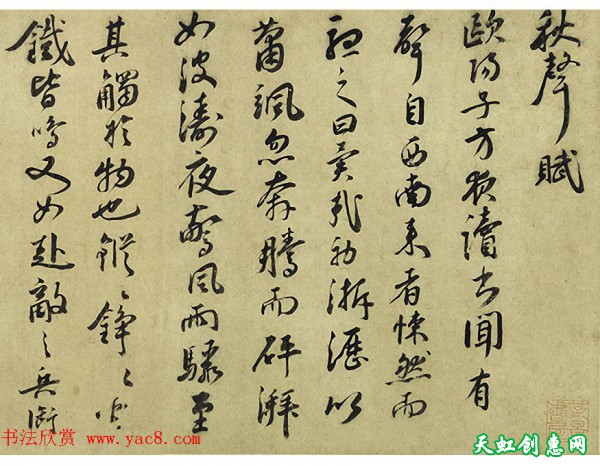 秋聲賦
歐陽子方夜讀書聞有
聲自西南來者悚然而
聽之曰異哉初淅瀝以
蕭颯忽奔騰而砰湃
如波濤夜驚風雨驟至
其觸於物也鏦々錚々金
鐵皆鳴又如赴敵之兵銜
书法欣赏 www.yac8.com
天虹创惠网